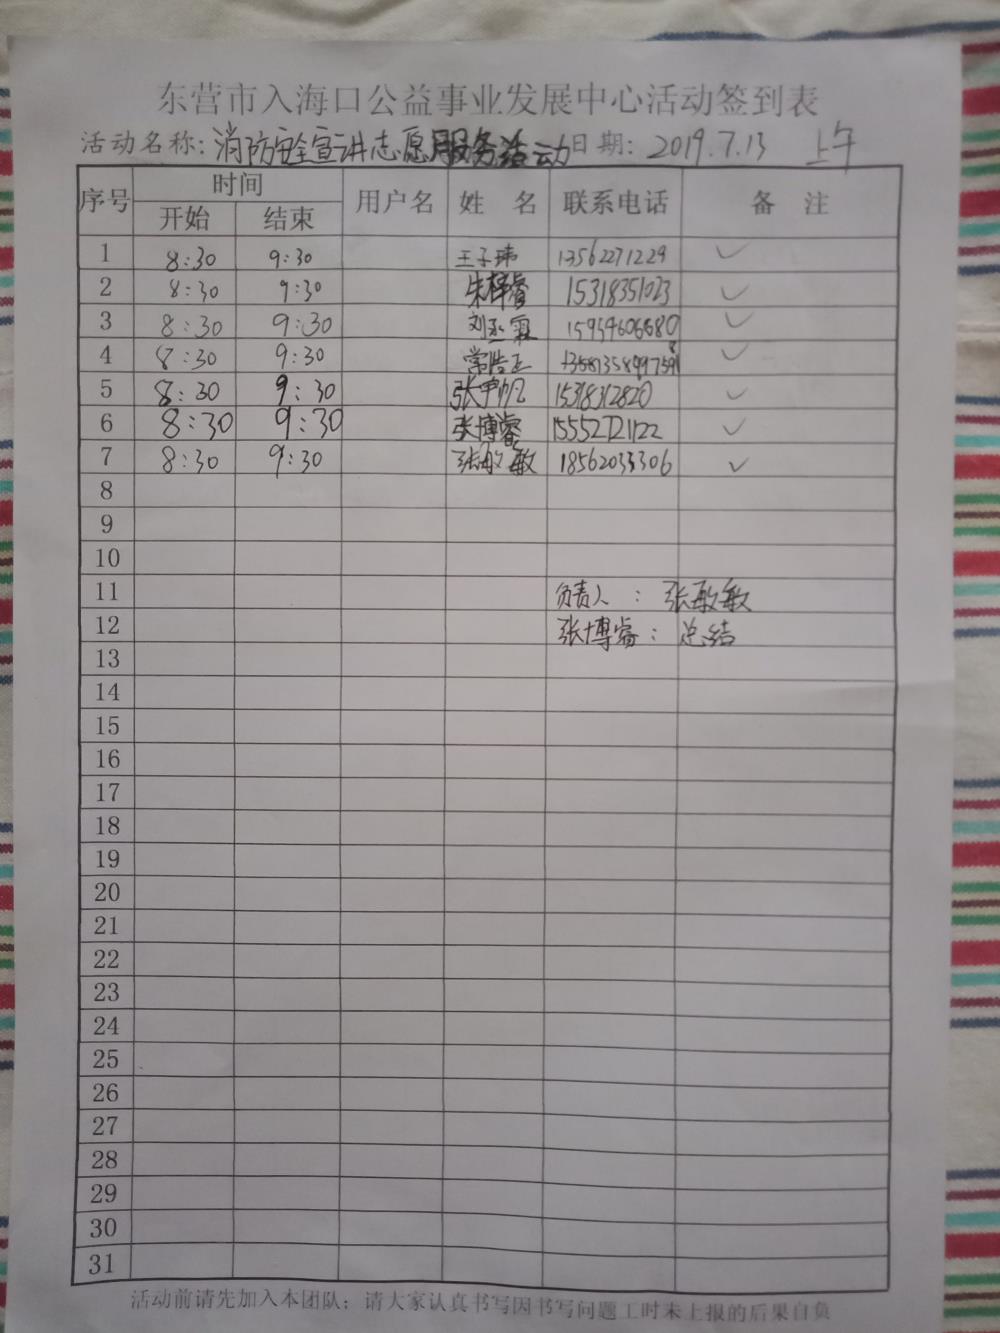 东营市入海口公益事业发展中心活动签到表
活动名称：消防安全宣讲志愿服务活动 日期：2019.7.13 上午
序号 时间 用户名 姓 名 联系电话 备 注
开始 结束
1 8:30 9:30 王子玮 13562271229 ✓
2 8:30 9:30 朱梓睿 15318351023 ✓
3 8:30 9:30 刘丞霖 15954606680 ✓
4 8:30 9:30 常浩正 ✓
5 8:30 9:30 张 帆 15318312820 ✓
6 8:30 9:30 张博睿 15552721122 ✓
7 8:30 9:30 张敏敏 18562033306 ✓
8
9
10
11 负责人：张敏敏
12 张博睿：总结
13
14
15
16
17
18
19
20
21
22
23
24
25
26
27
28
29
30
31
活动前请先加入本团队；请大家认真书写因书写问题工时未上报的后果自负